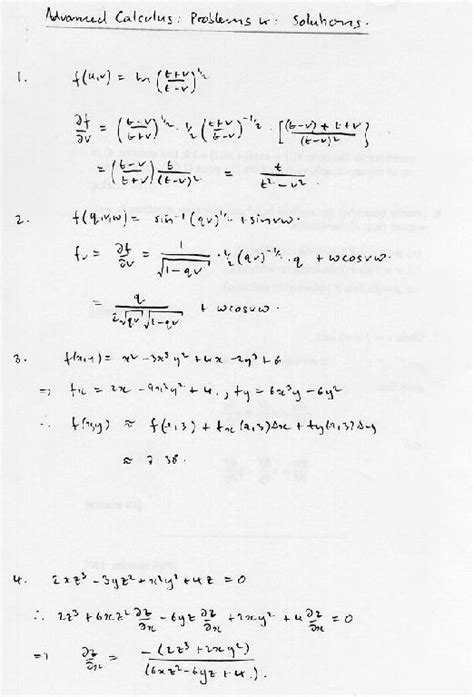 Advanced Calculus: Problems 4: Solutions.
1. f(u,v) = ln ((t+v)/(t-v))^1/2
∂f/∂v = ((t-v)/(t+v))^1/2 · 1/2 ((t+v)/(t-v))^-1/2 · [((t-v)+t+v)/(t-v)²]
= ((t-v)/(t+v)) t/(t-v)² = t/(t²-v²)
2. f(q,v,w) = sin⁻¹(qv)^1/2 + sin vw.
f_v = ∂f/∂v = 1/√(1-qv) · 1/2 (qv)^-1/2 · q + w cos vw.
= q/(2√qv √(1-qv)) + w cos vw.
3. f(x,y) = x² - 3x³y² + 4x - 2y³ + 6
=> fx = 2x - 9x²y² + 4., fy = 6x³y - 6y²
∴ f(x,y) ≈ f(2,3) + fx(2,3)Δx + fy(2,3)Δy
≈ 7.38.
4. 2xz³ - 3yz² + x²y² + 4z = 0
∴ 2z³ + 6xz² ∂z/∂x - 6yz ∂z/∂x + 2xy² + 4 ∂z/∂x = 0
=> ∂z/∂x = -(2z³ + 2xy²)/(6xz² - 6yz + 4.)